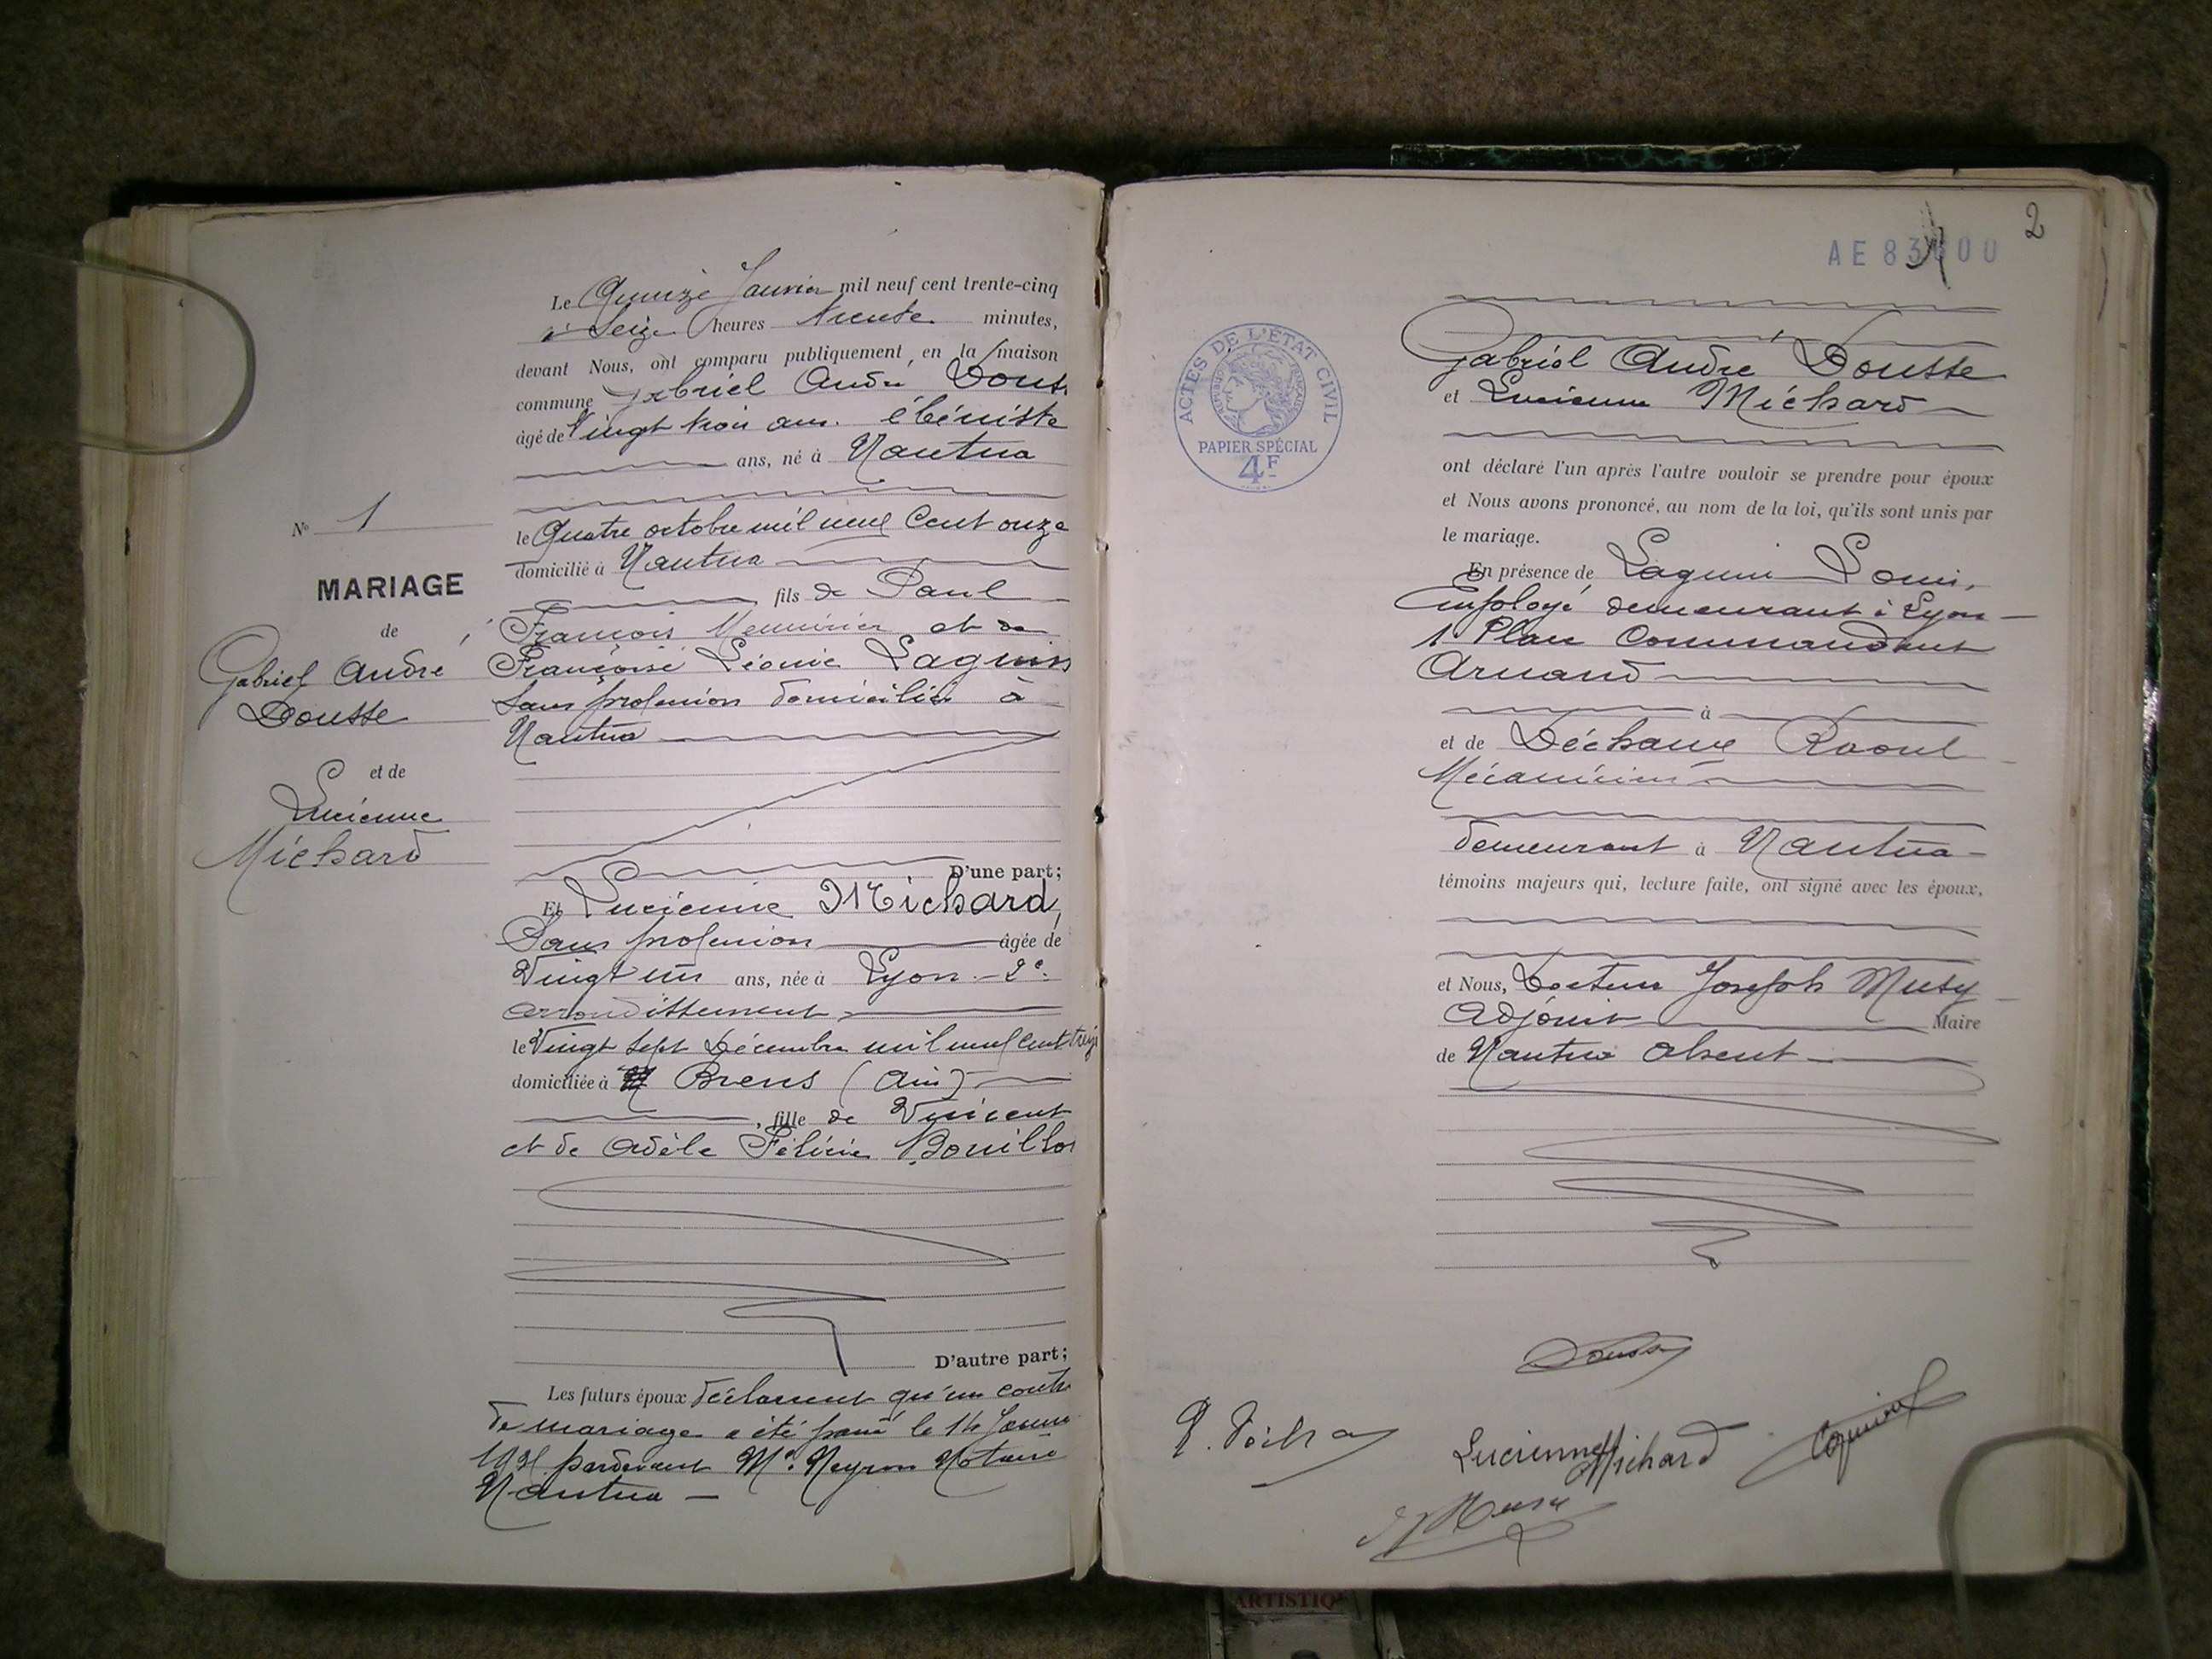 Le Quinze Janvier mil neuf cent trente-cinq
à Seize heures trente minutes,
devant Nous, ont comparu publiquement, en la maison
commune Gabriel André Dousse
âgé de Vingt trois ans. ébéniste
ans, né à Nantua
le Quatre octobre mil neuf Cent onze
domicilié à Nantua
fils de Paul
François Menuisier et de
Françoise Léonie Laguin
Sans profession domiciliés à
Nantua
D'une part;
Et Lucienne Michard,
Sans profession âgée de
Vingt un ans, née à Lyon - 2e
arrondissement
le Vingt sept Décembre mil neuf cent treize
domiciliée à Brens (Ain)
, fille de Vincent
et de Adèle Félicie Bouillo
D'autre part;
Les futurs époux déclarent qu'un contr
de mariage a été passé le 14
pardevant Me. Neyron Notaire
Nantua -
No 1
MARIAGE
de
Gabriel André
Dousse
et de
Lucienne
Michard
2
AE 83 00
ACTES DE L'ÉTAT CIVIL
RÉPUBLIQUE FRANÇAISE
PAPIER SPÉCIAL
4F
Gabriel André Dousse
et Lucienne Michard
ont déclaré l'un après l'autre vouloir se prendre pour époux
et Nous avons prononcé, au nom de la loi, qu'ils sont unis par
le mariage.
En présence de Laguin Louis,
Employé demeurant à Lyon
1 Place Commandant
Arnaud
à
et de Déchame Raoul
Mécanicien
demeurant à Nantua
témoins majeurs qui, lecture faite, ont signé avec les époux,
et Nous, Docteur Joseph Musy
Adjoint Maire
de Nantua absent
Dousse
Lucienne Michard
Laguin
Musy
ARTISTIQ